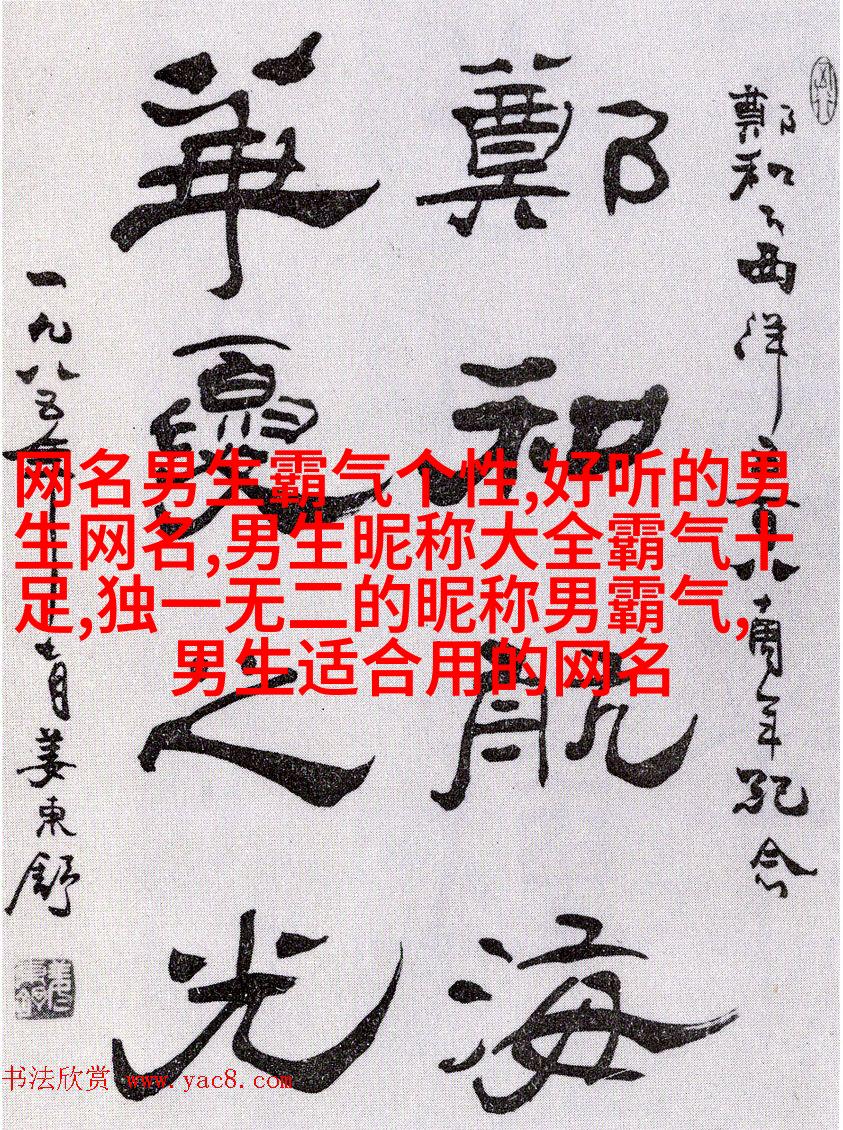 鄭和下西洋五百八十周年紀念
鄭和航海
華夏之光
一九八五年
月姜東舒
网名男生霸气个性,好听的男
生网名,男生昵称大全霸气十
足,独一无二的昵称男霸气,
男生适合用的网名
书法欣赏 www.yac8.com